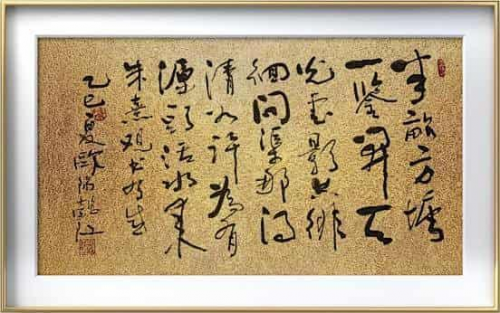 半畝方塘
一鑒開天
光雲影共徘
徊問渠那得
清如許為有
源頭活水來
朱熹觀書有感
乙巳夏歐陽